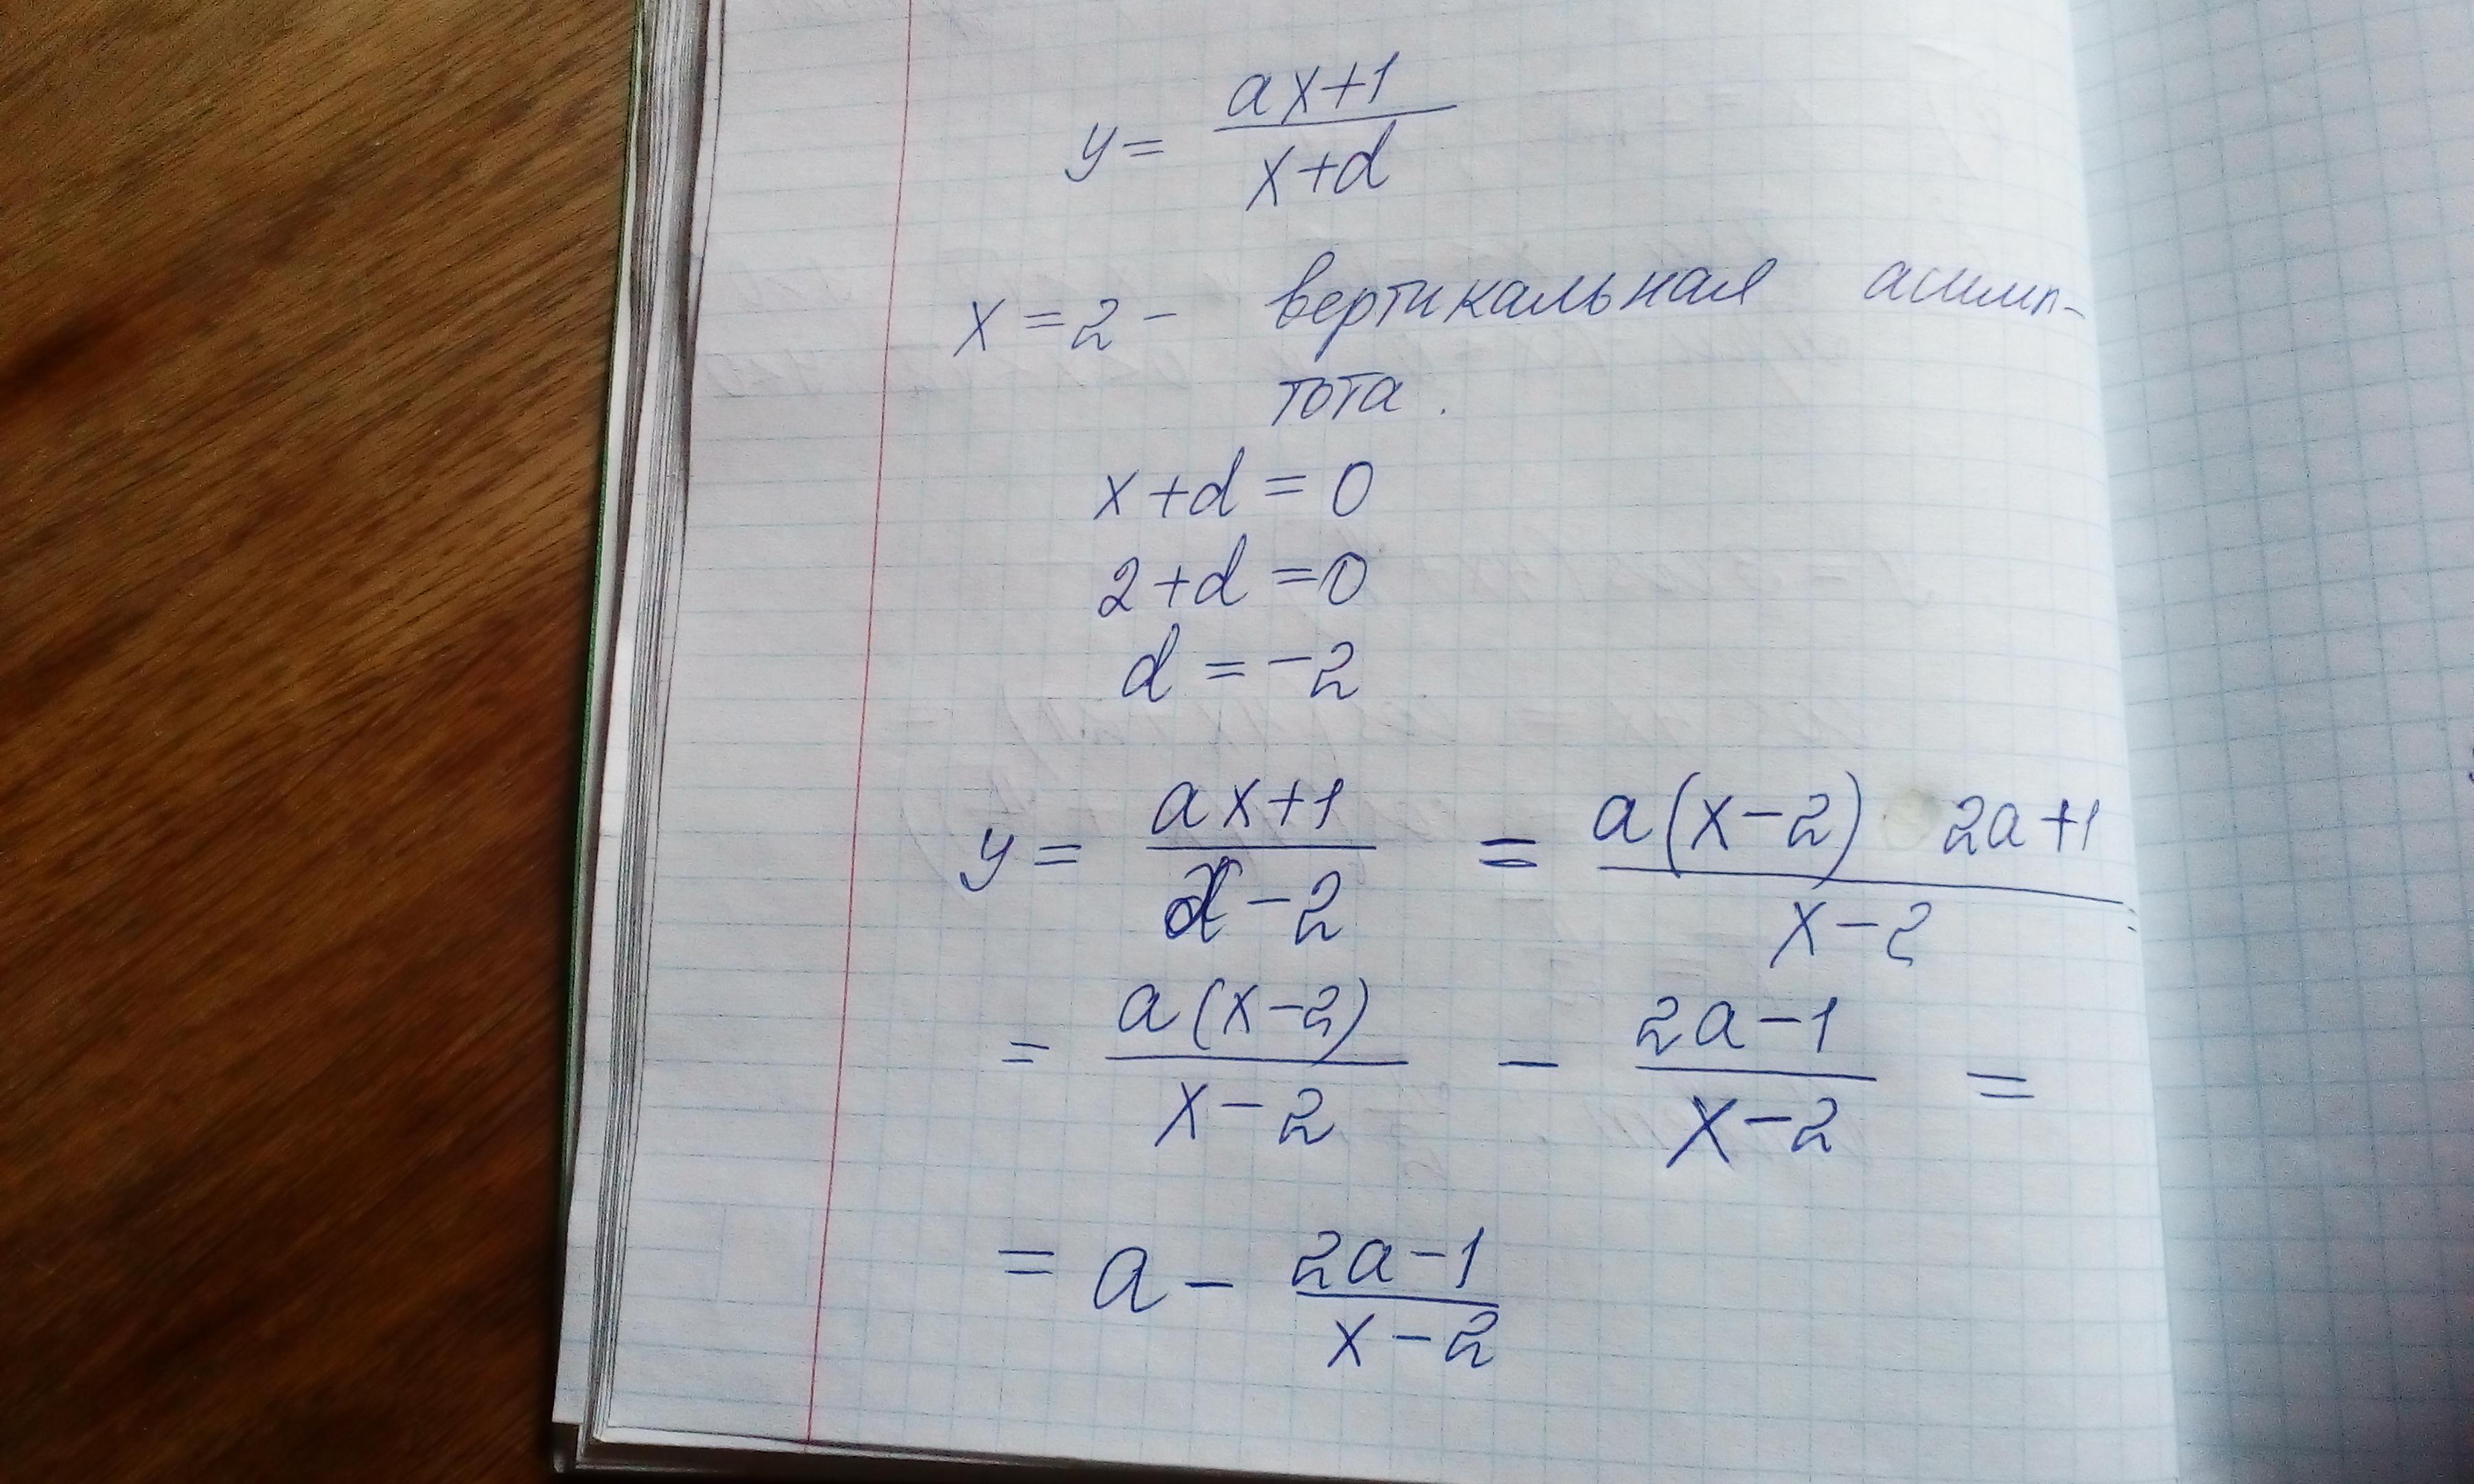 y = (ax+1)/(x+d)
x = 2 - вертикальная асимп-
тота.
x+d = 0
2+d = 0
d = -2
y = (ax+1)/(x-2) = (a(x-2) 2a+1)/(x-2) =
= (a(x-2))/(x-2) - (2a-1)/(x-2) =
= a - (2a-1)/(x-2)